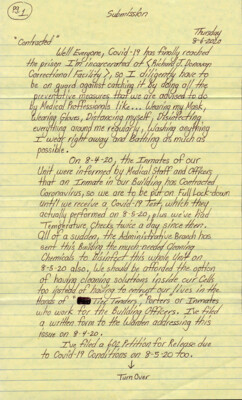 Pg 1
Submission
Thursday
8-6-2020
"Contracted"
Well Everyone, Covid-19 has finally reached
the prison I'm incarcerated at (Richard J. Donovan
Correctional Facility), so I diligently have to
be on guard against catching it by doing all the
preventative measures that we are advised to do
by Medical Proffessionals like... Wearing my Mask,
Wearing Gloves, Distancing myself, Disinfecting
everything around me regularly, Washing anything
I wear right away and Bathing as much as
possible.
On 8-4-20, the Inmates of our
Unit were informed by Medical Staff and Officers
that an Inmate in our Building has Contracted
Coronavirus, so we are to be put on Full Lock down
Until we receive a Covid-19 Test, which they
actually performed on 8-5-20, plus we've had
Temperature Checks twice a day since then.
All of a sudden, the Administrative Branch has
sent this Building the much needed Cleaning
Chemicals to Disinfect this whole Unit on
8-5-20 also. We should be afforded the option
of having cleaning solutions inside our Cells
too instead of having to entrust our lives in the
Hands of " Tier Tenders", Porters or Inmates
who work for the Building Officers. I've filed
a written form to the Warden addressing this
issue on 8-4-20.
I've filed a Petition for Release due
to Covid-19 Conditions on 8-5-20 too.
Turn Over